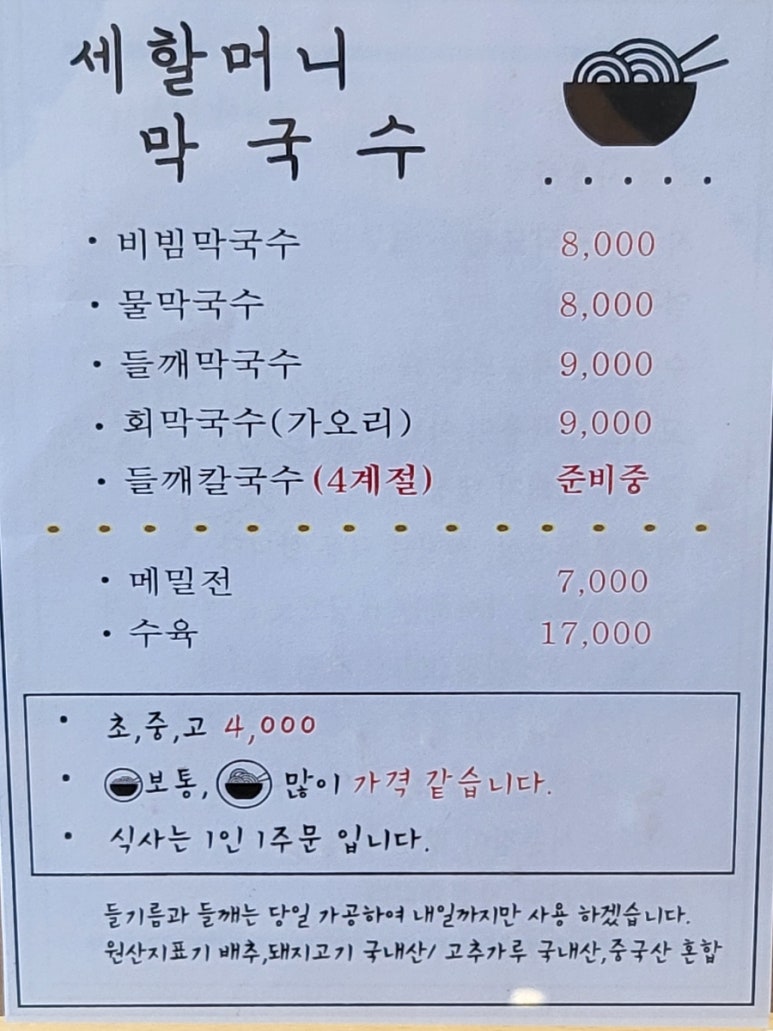 세할머니
막국수
• 비빔막국수 8,000
• 물막국수 8,000
• 들깨막국수 9,000
• 회막국수(가오리) 9,000
• 들깨칼국수(4계절) 준비중
• 메밀전 7,000
• 수육 17,000
• 초,중,고 4,000
• 보통, 많이 가격 같습니다.
• 식사는 1인 1주문 입니다.
들기름과 들깨는 당일 가공하여 내일까지만 사용 하겠습니다.
원산지표기 배추,돼지고기 국내산/ 고추가루 국내산,중국산 혼합